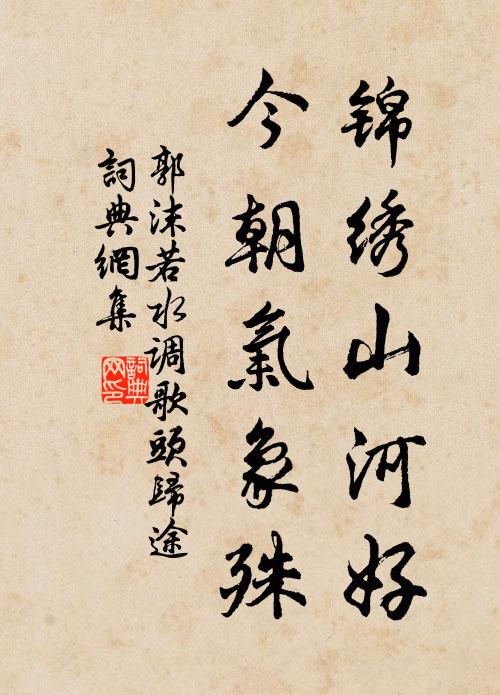 锦绣山河好
今朝氣象殊
郭沫若水调歌頭歸途
詞典網集
詞典
网印